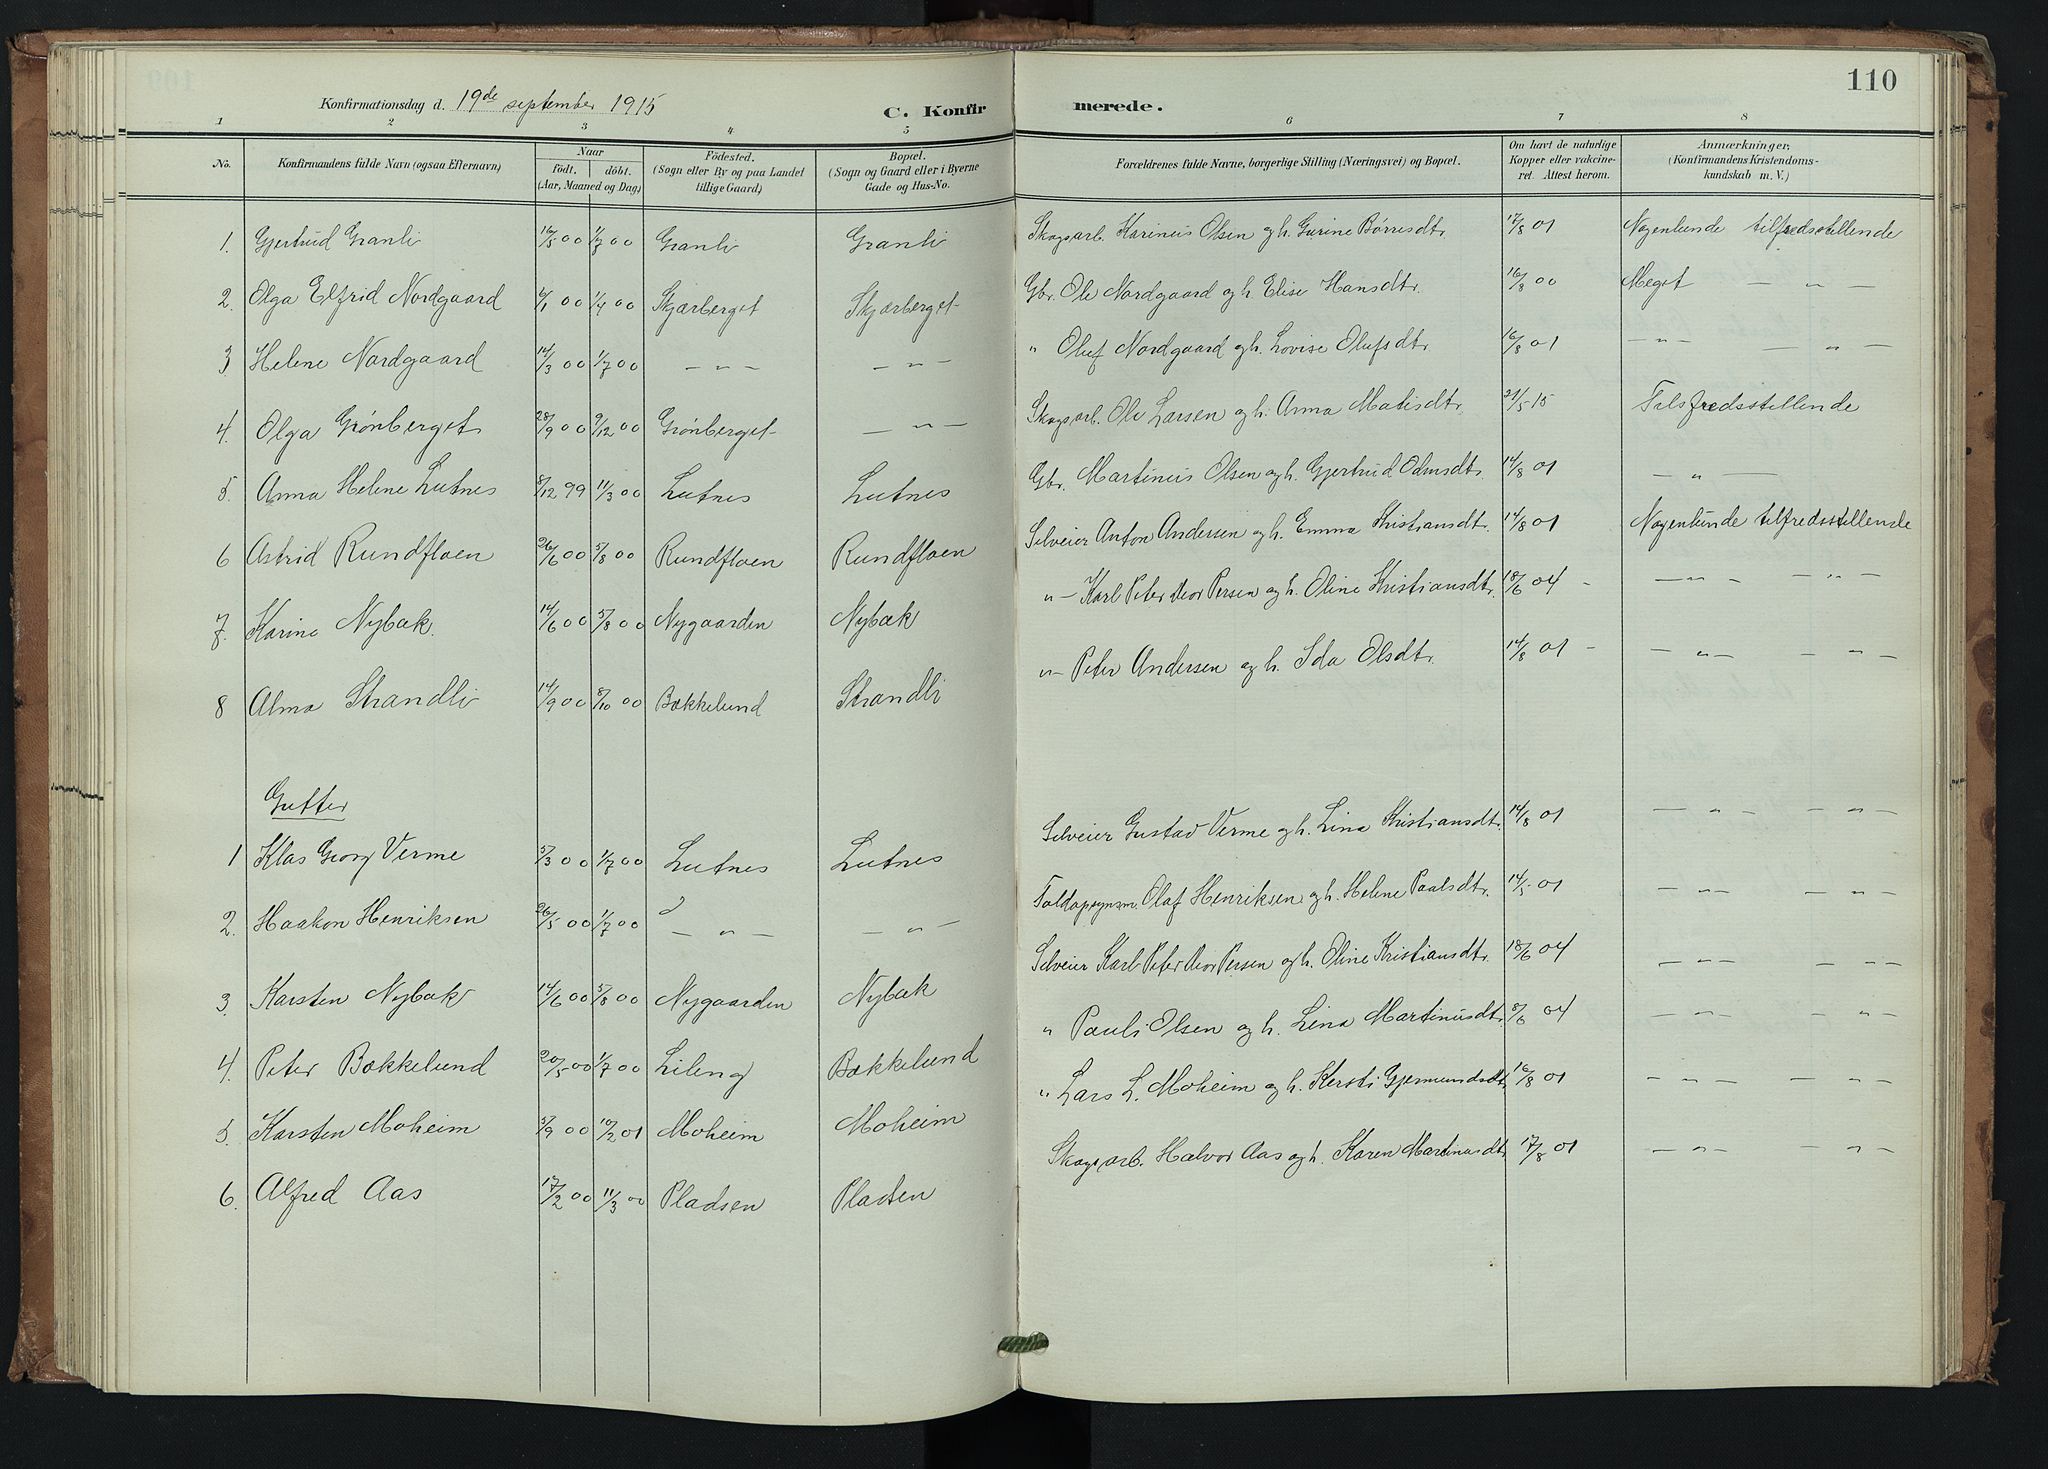 110
Konfirmationsdag d. 19de september 1915 C. Konfirmerede.
1 2 3 4 5 6 7 8
No. Konfirmandens fulde Navn (ogsaa Efternavn) Naar født, døbt. (Aar, Maaned og Dag) Fødested. (Sogn eller By og paa Landet tillige Gaard) Bopæl. (Sogn og Gaard eller i Byerne Gade og Hus-No. Forældrenes fulde Navne, borgerlige Stilling (Næringsvei) og Bopæl. Om havt de naturlige Kopper eller vakcineret. Attest herom. Anmærkninger, (Konfirmandens Kristendomskundskab m. V.)
1. Gjertrud Granli 16/5 00 1/7 00 Granli Granli Skogsarb. Karinus Olsen og h. Gurine Børresdtr. 17/8 01 Nogenlunde tilfredsstillende
2. Olga Elfrid Nordgaard 6/1 00 1/4 00 Skjærberget Skjærberget Gbr. Ole Nordgaard og h. Elise Hansdtr. 16/8 00 Meget — „ —
3. Helene Nordgaard 14/3 00 1/7 00 — „ — — „ — „ Oluf Nordgaard og h. Lovise Olufsdtr. 16/8 01 — „ — — „ —
4. Olga Grønberget 28/9 00 9/12 00 Grønberget — „ — Skogsarb. Ole Larsen og h. Anna Matisdtr. 21/5 15 Tilfredsstillende
5. Anna Helene Lutnes 8/12 99 11/3 00 Lutnes Lutnes Gbr. Martinus Olsen og h. Gjertrud Odinsdtr. 14/8 01 — „ —
6 Astrid Rundfloen 26/6 00 5/8 00 Rundfloen Rundfloen Selveier Anton Andersen og h. Emma Kristiansdtr. 14/8 01 Nogenlunde tilfredsstillende
7. Karine Nybak 14/6 00 5/8 00 Nygaarden Nybæk „ — Karl Peter Mor Persen og h. Oline Kristiansdtr. 18/6 04 — — „ — — „ —
8 Alma Strandli 14/9 00 8/10 00 Bækkelund Strandli „ — Peter Andersen og h. Ida Olsdtr. 14/8 01 — — „ — — „ —
Gutter
1 Klas Georg Verme 5/3 00 1/7 00 Lutnes Lutnes Selveier Gustav Verme og h. Lina Kristiansdtr. 14/8 01 — „ — — „ —
2. Haakon Henriksen 26/5 00 1/7 00 — „ — — „ — Toldopsynsm. Olaf Henriksen og h. Helene Paulsdtr. 14/5 01 — „ — — „ —
3. Karsten Nybæk 14/6 00 5/8 00 Nygaarden Nybæk Selveier Karl Peter Mor Persen og h. Oline Kristiansdtr. 18/6 04 — „ — — „ —
4. Peter Bækkelund 20/5 00 1/7 00 Liling Bækkelund „ Pauli Olsen og h. Lina Martinusdtr. 8/6 04 — „ — — „ —
5. Karsten Moheim 5/9 00 10/2 01 Moheim Moheim „ Lars L. Moheim og h. Kersti Gjermundsdtr. 16/8 01 — „ — — „ —
6. Alfred Aas 17/2 00 11/3 00 Pladsen Pladsen Skogsarb. Halvor Aas og h. Karen Martinusdtr. 17/8 01 — „ — — „ —